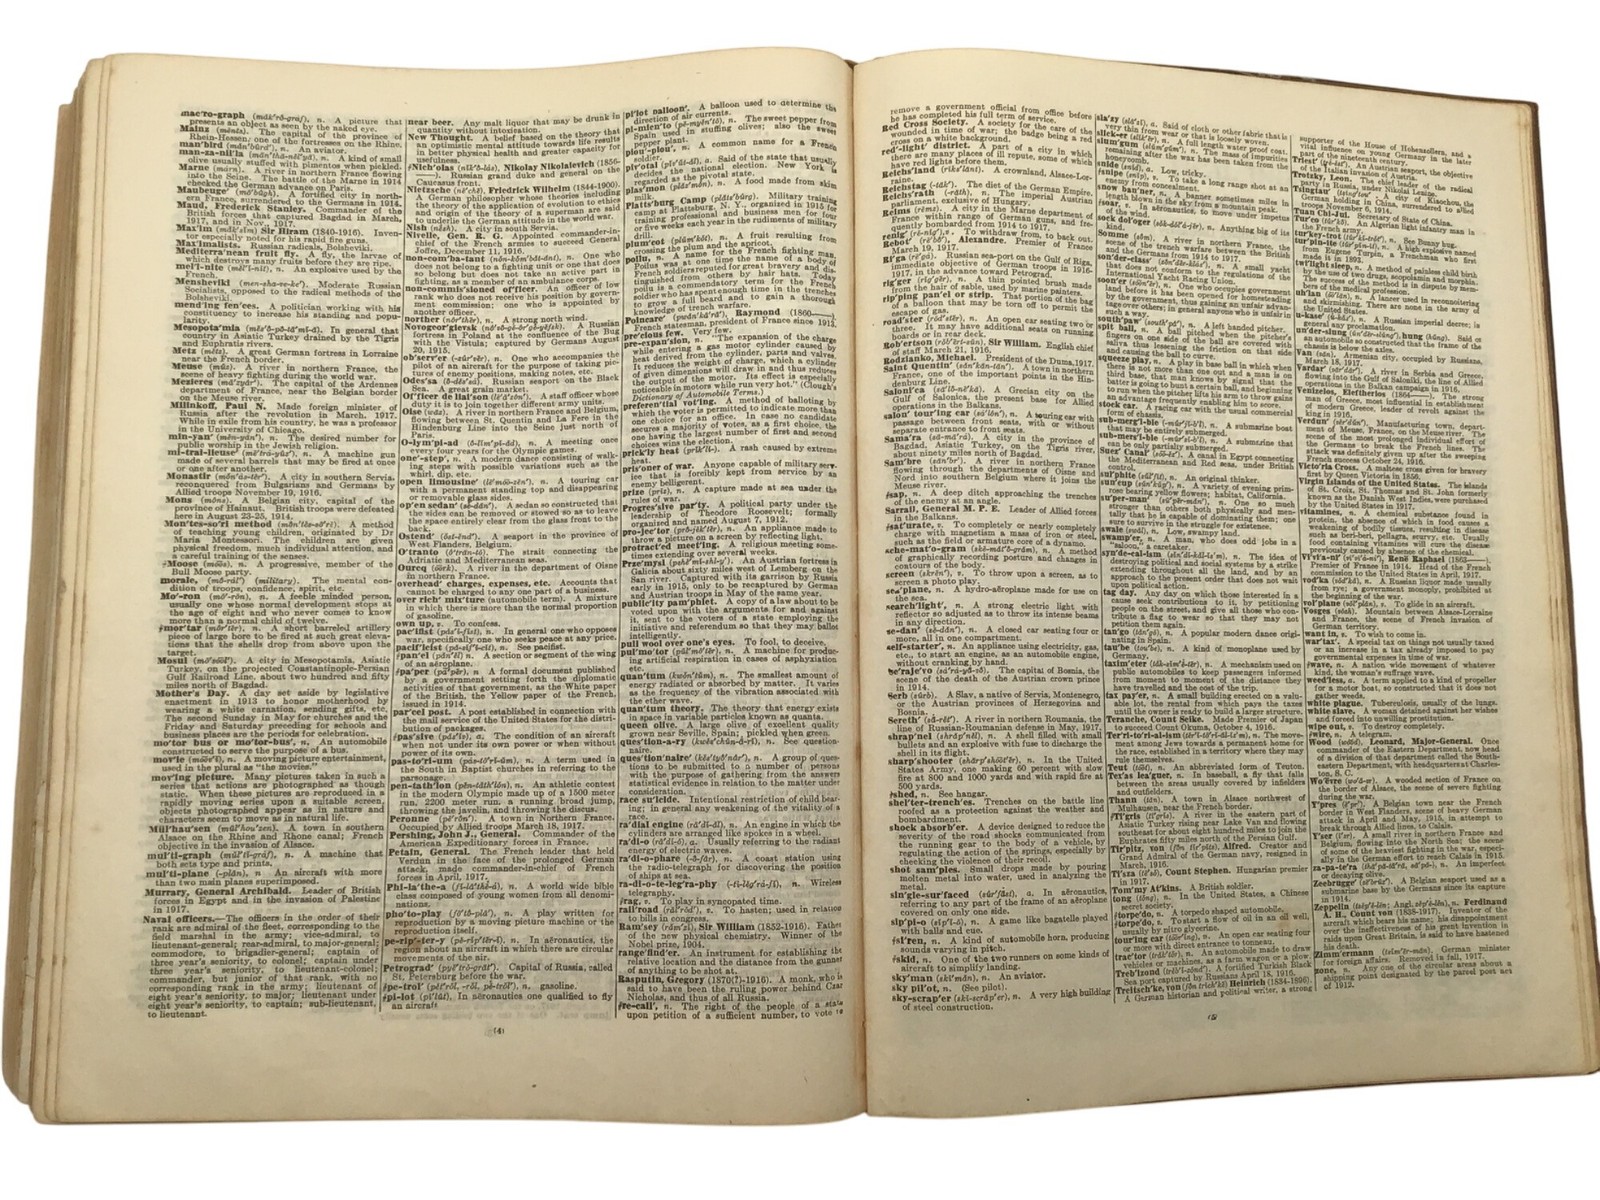 mac'ro-graph (măk'rō-grȧf), n. A picture that
presents an object as seen by the naked eye.
Mainz (mĕnts). The capital of the province of
Rhein-Hessen, one of the fortresses on the Rhine.
man'bird (măn'bûrd'), n. An aviator.
man-za-nil'la (măn'thä-nēl'yä), n. A kind of small
olive usually stuffed with pimentos when pickled.
Marne (märn). A river in northern France flowing
into the Seine. The battle of the Marne in 1914
checked the German advance on Paris.
Maubeuge' (mō'bûzh). A fortified city in north-
ern France, surrendered to the Germans in 1914.
Maud, Frederick Stanley. Commander of the
British forces that captured Bagdad in March,
1917, and in Nov., 1917.
Max'im (măk'sĭm) Sir Hiram (1840-1916). Inven-
tor especially noted for his rapid fire guns.
Max'imalists. Russian radicals, Bolsheviki.
Mediterra'nean fruit fly. A fly, the larvae of
which destroys many fruits before they are ripe.
mel'i-nite (mĕl'ĭ-nīt), n. An explosive used by the
French.
Mensheviki (men-sha-ee-ke'). Moderate Russian
Socialists, opposed to the radical methods of the
Bolsheviki.
mend'ing fen'ces. A politician working with his
constituency to increase his standing and popu-
larity.
Mesopota'mia. In general that
country in Asiatic Turkey drained by the Tigris
and Euphratis rivers.
Metz (mĕts). A great German fortress in Lorraine
near the French border.
Meuse (mûz). A river in northern France, the
scene of heavy fighting during the world war.
Mezieres. The capital of the Ardennes
department of France, near the Belgian border
on the Meuse river.
Milinkoff, Paul N. Made foreign minister of
Russia after the revolution in March, 1917.
While in exile from his country, he was a professor
in the University of Chicago.
min-yan' (mĕn-yän'), n. The desired number for
public worship in the Jewish religion.
mi-tral-lieuse', n. A machine gun
made of several barrels that may be fired at once
or one after another.
Monastir. A city in southern Servia,
reconquered from Bulgarians and Germans by
Allied troops November 19, 1916.
Mons (môns). A Belgian city, capital of the
province of Hainaut. British troops were defeated
here in August 23-25, 1914.
Mon'tes-so'ri method. A method
of teaching young children, originated by Dr
Maria Montessori. The children are given
physical freedom, much individual attention, and
a careful training of the senses.
Moose (mōōs), n. A progressive, member of the
Bull Moose party.
morale, (mō-räl') (military). The mental con-
dition of troops, confidence, spirit, etc.
Mo'-ron (mō'-rŏn), n. A feeble minded person,
usually one whose normal development stops at
the age of eight and who never comes to know
more than a normal child of twelve.
mor'tar (môr'tẽr), n. A short barreled artillery
piece of large bore to be fired at such great eleva-
tions that the shells drop from above upon the
target.
Mosul. A city in Mesopotamia, Asiatic
Turkey, on the projected Constantinople-Persian
Gulf Railroad Line, about two hundred and fifty
miles north of Bagdad.
Mother's Day. A day set aside by legislative
enactment in 1913 to honor motherhood by
wearing a white carnation, sending gifts, etc.
The second Sunday in May for churches and the
Friday and Saturday preceding for schools and
business places are the periods for celebration.
mo'tor bus or mo'tor-bus', n. An automobile
constructed to serve the purpose of a bus.
mov'ie (mōōv'ĭ), n. A moving picture entertainment,
used in the plural as "the movies."
mov'ing picture. Many pictures taken in such a
series that actions are photographed as though
static. When these pictures are reproduced in a
rapidly moving series upon a suitable screen,
objects photographed appear as in nature and
characters seem to move as in natural life.
Mül'hau'sen (mül'hou'zen). A town in southern
Alsace on the Rhine and Rhone canal; French
objective in the invasion of Alsace.
mul'ti-graph (mŭl'tĭ-grăf), n. A machine that
both sets type and prints.
mul'ti-plane (-plān), n. An aircraft with more
than two main planes superimposed.
Murray, General Archibald. Leader of British
forces in Egypt and in the invasion of Palestine
in 1917.
Naval officers.—The officers in the order of their
rank are admiral of the fleet, corresponding to the
field marshal in the army; vice-admiral, to
lieutenant-general; rear-admiral, to major-general;
commodore, to brigadier-general; captain of
three year's seniority, to colonel; captain under
three year's seniority, to lieutenant-colonel;
commander, but junior of that rank, with cor-
responding rank in the army; lieutenant of
eight year's seniority, to major; lieutenant under
eight year's seniority, to captain; sub-lieutenant,
to lieutenant.
near beer. Any malt liquor that may be drunk in
quantity without intoxication.
New Thought. A belief based on the theory that
an optimistic mental attitude towards life results
in better physical health and greater capacity for
usefulness.
Nich'olas (nĭk'ō-lȧs), Nikolay Nikolaievich (1856-
——). Russian grand duke and general on the
Caucasus front.
Nietzsche, Friedrich Wilhelm (1844-1900).
A German philosopher whose theories included
the theory of the application of evolution to ethics
and origin of the theory of a superman are said
to underlie the German attitude in the world war.
Nish (nĕsh). A city in south Servia.
Nivelle, Gen. R. G. Appointed commander-in-
chief of the French armies to succeed General
Joffre, December 11, 1916.
non-com'ba-tant, n. One who
does not belong to a fighting unit or one that does
so belong but does not take an active part in
fighting, as a member of an ambulance corps.
non-commis'sioned of'ficer. An officer of low
rank who does not receive his position by govern-
ment commission; one who is appointed by
another officer.
norther (nôr'thẽr), n. A strong north wind.
Novogeor'gievsk. A Russian
fortress in Poland at the confluence of the Bug
with Vistula; captured by Germans August
20, 1915.
ob'serv'er (-zûr'vẽr), n. One who accompanies the
pilot of an aircraft for the purpose of taking pic-
tures of enemy positions, making notes, etc.
Odes'sa (ō-dĕs'sȧ). Russian seaport on the Black
Sea. A great grain market.
Of'ficer de liai'son (lē'ā'zôn). A staff officer whose
duty it is to join together different army units.
Oise (wäz). A river in northern France and Belgium,
flowing between St. Quentin and La Fere in the
Hindenburg Line into the Seine just north of
Paris.
O-lym'pi-ad (ō-lĭm'pĭ-ăd), n. A meeting once
every four years for the Olympic games.
one'-step', n. A modern dance consisting of walk-
ing steps with possible variations such as the
whirl, dip, etc.
open limousine'. A touring car
with a permanent standing top and disappearing
or removable glass sides.
op'en sedan' (sē-dăn'). A sedan so constructed that
the sides can be removed or stowed so as to leave
the space entirely clear from the glass front to the
back.
Ostend' (ŏst-ĕnd'). A seaport in the province of
West Flanders, Belgium.
O'tranto (ō'trän-tō). The strait connecting the
Adriatic and Mediterranean seas.
Ourcq (ōōrk). A river in the department of Oise
in northern France.
overhead' charge, expenses, etc. Accounts that
cannot be charged to any one part of a business.
over rich' mix'ture (automobile term). A mixture
in which there is more than the normal proportion
of gasoline.
own up, v. To confess.
pac'ifist (păs'ĭ-fĭst), n. In general one who opposes
war, specifically one who seeks peace at any price.
pacif'icist (pȧ-sĭf'ĭ-sĭst), n. See pacifist.
pan'el (păn'ĕl) n. A section or segment of the wing
of an aëroplane.
pa'per (pā'pẽr), n. A formal document published
by a government setting forth the diplomatic
activities of that government, as the White paper
of the British, the Yellow paper of the French,
issued in 1914.
par'cel post. A post established in connection with
the mail service of the United States for the distri-
bution of packages.
pas'sive (păs'ĭv), a. The condition of an aircraft
when not under its own power or when without
power of its own.
pas-to'ri-um (pȧs-tō'rĭ-ŭm), n. A term used in
the South in Baptist churches in referring to the
parsonage.
pen-tath'lon (pĕn-tăth'lŏn), n. An athletic contest
in the modern Olympic made up of a 1500 meter
run, 2200 meter run, a running broad jump,
throwing the javelin, and throwing the discus.
Peronne (pĕ'rŏn'). A town in Northern France.
Occupied by Allied troops March 18, 1917.
Pershing, John J., General. Commander of the
American Expeditionary forces in France.
Petain, General. The French leader that held
Verdun in the face of the prolonged German
attack, made commander-in-chief of French
forces in April, 1917.
Phi-la'the-a (fĭ-lā'thē-ȧ), n. A world wide bible
class composed of young women from all denomi-
nations.
pho'to-play (fō'tō-plā'), n. A play written for
reproduction by a moving picture machine or the
reproduction itself.
pe-rip'-ter-y (pē-rĭp'tẽr-ĭ), n. In aëronautics, the
region about an aircraft in which there are circular
movements of the air.
Petrograd'. Capital of Russia, called
St. Petersburg before the war.
pe-trol' (pĕt'rŏl, -rōl, pē-trŏl'), n. gasoline.
pi-lot (pī'lŭt), In aëronautics one qualified to fly
an aircraft.
pi'lot balloon'. A balloon used to determine the
direction of air currents.
pi-mien'to (pē-myĕn'tō), n. The sweet pepper from
Spain used in stuffing olives; also the sweet
pepper plant.
piou'-piou', n. A common name for a French
soldier.
piv'otal (pĭv'ŭt-ăl), a. Said of the state that usually
decides the national election. New York is
regarded as the pivotal state.
plas'mon (plăz'mŏn), n. A food made from skim
milk.
Platts'burg Camp (plăts'bûrg). Military training
camp at Plattsburg, N. Y., organized in 1915 for
training professional and business men for four
or five weeks each year in the rudiments of military
drill.
plum'cot (plŭm'kŏt), n. A fruit resulting from
crossing the plum and the apricot.
poilu, n. A name for the French fighting man.
Poilus was at one time the name of a body of
French soldiers reputed for great bravery and dis-
tinguished from others by their hats. Today
poilu is a commendatory term for the French
soldier who has spent enough time in the trenches
to grow a full beard and to gain a thorough
knowledge of trench warfare.
Poincaré', Raymond (1860——).
French statesman, president of France since 1913.
pre'cious few. Very few.
pre-expan'sion, n. "The expansion of the charge
while entering a gas motor cylinder caused by
heat derived from the cylinder, parts and valves.
It reduces the weight of charge, which a cylinder
of given dimensions will draw in and thus reduces
the output of the motor. Its effect is especially
noticeable in motors while run very hot." (Clough's
Dictionary of Automobile Terms.)
preferen'tial vot'ing. A method of balloting by
which the voter is permitted to indicate more than
one choice for an office. In case no candidate
secures a majority of votes, as a first choice, the
one having the largest number of first and second
choices wins the election.
prick'ly heat (prĭk'lĭ-). A rash caused by extreme
heat.
pris'oner of war. Anyone capable of military serv-
ice that is interfered with forcibly by an
enemy belligerent.
prize (prīz), n. A capture made at sea under the
rules of war.
Progres'sive par'ty. A political party under the
leadership of Theodore Roosevelt; formally
organized and named August 7, 1912.
pro-jec'tor (prō-jĕk'tẽr), n. An appliance made to
throw a picture on a screen by reflecting light.
protract'ed meet'ing. A religious meeting some-
times extending over several weeks.
Prze'mysl. An Austrian fortress in
Galicia about sixty miles west of Lemberg on the
San river. Captured with its garrison by Russia
early in 1915, only to be recaptured by German
and Austrian troops in May of the same year.
public'ity pam'phlet. A copy of a law about to be
voted upon with the arguments for and against
it, sent to the voters of a state employing the
initiative and referendum so that they may ballot
intelligently.
pull wool over one's eyes. To fool, to deceive.
pul'mo'tor (pŭl'mō'tẽr), n. A machine for produc-
ing artificial respiration in cases of asphyxiation
etc.
quan'tum (kwŏn'tŭm), n. The smallest amount of
energy radiated or absorbed by matter. It varies
as the frequency of the vibration associated with
the ether wave.
quan'tum theory. The theory that energy exists
in space in variable particles known as quanta.
queen olive. A large olive of excellent quality
grown near Seville, Spain; pickled when green.
ques'tion-a-ry, n. See question-
naire.
ques'tion'naire', n. A group of ques-
tions to be submitted to a number of persons
with the purpose of gathering from the answers
statistical evidence in relation to the matter under
consideration.
race su'icide. Intentional restriction of child bear-
ing; any weakening of the vitality of a
race.
ra'dial engine (rā'dĭ-ăl), n. An engine in which the
cylinders are arranged like spokes in a wheel.
ra'di-o (rā'dĭ-ō), a. Usually referring to the radiant
energy of electric waves.
ra'di-o-phare (-ō-fâr), n. A coast station using
the radio-telegraph for discovering the position
of ships at sea.
ra-di-o-te-leg'ra-phy, n. Wireless
telegraphy.
rag, v. To play in syncopated time.
rail'road (rāl'rōd'), v. To hasten; used in relation
to bills in congress.
Ram'sey (răm'zĭ), Sir William (1852-1916). Father
of the new physical chemistry. Winner of the
Nobel prize, 1904.
range'find'er. An instrument for establishing the
relative location and the distance from the gunner
of anything to be shot at.
Rasputin, Gregory (1870(?)-1916). A monk, who is
said to have been the ruling power behind Czar
Nicholas, and thus of all Russia.
re-call', n. The right of the people of a state
upon petition of a sufficient number, to vote to
(4)
remove a government official from office before
he has completed his full term of service.
Red Cross Society. A society for the care of the
wounded in time of war; the badge being a red
cross on a white background.
red'-light' district. A part of a city in which
there are many places of ill repute, some of which
have red lights before them.
Reichs'land (rīks'länt). A crownland, Alsace-Lor-
raine.
Reichstag (-täk'). The diet of the German Empire.
Reichs'rath (-rät), n. The imperial Austrian
parliament, exclusive of Hungary.
Reims (rēmz). A city in the Marne department of
France within range of German guns, and fre-
quently bombarded from 1914 to 1917.
renig' (rē-nĭg'), v. To withdraw from, to back out.
Rebot' (rē'bō'), Alexandre. Premier of France
March 19, 1917.
Ri'ga (rē'gȧ). Russian sea-port on the Gulf of Riga,
immediate objective of German troops in 1916-
1917, in the advance toward Petrograd.
rig'ger (rĭg'gẽr), n. A thin pointed brush made
from the hair of sable, used by marine painters.
rip'ping pan'el or strip. That portion of the bag
of a balloon that may be torn off to permit the
escape of gas.
road'ster (rōd'stẽr), n. An open car seating two or
three. It may have additional seats on running
boards or in rear deck.
Rob'ertson, Sir William. English chief
of staff March 21, 1916.
Rodzianko, Michael. President of the Duma, 1917.
Saint Quentin'. A town in northern
France, one of the important points in the Hin-
denburg Line.
Salon'ca. A Grecian city on the
Gulf of Salonika, the present base for Allied
operations in the Balkans.
salon' tour'ing car (sȧ'lôn'), n. A touring car with
passage between front seats, with or without
separate entrance to front seats.
Sama'ra (sä-mä'rä). A city in the province of
Bagdad, Asiatic Turkey, on the Tigris river,
about ninety miles north of Bagdad.
Sam'bre (sän'br'). A river in northern France
flowing through the departments of Oise and
Nord into southern Belgium where it joins the
Meuse river.
sap, n. A deep ditch approaching the trenches
of the enemy at an angle.
Sarrail, General M. P. E. Leader of Allied forces
in the Balkans.
saturate, v. To completely or nearly completely
charge with magnetism a mass of iron or steel,
such as the field or armature core of a dynamo.
sche-mat'o-gram, n. A method of
graphically recording posture and changes in
contours of the body.
screen (skrēn'), v. To throw upon a screen, as to
screen a photo play.
sea'plane, n. A hydro-aëroplane made for use on
the sea.
search'light', n. A strong electric light with
reflector so adjusted as to throw its intense beams
in any direction.
se-dan' (sē-dăn'), n. A closed car seating four or
more, all in one compartment.
self-starter', n. An appliance using electricity, gas,
etc., to start an engine, as an automobile engine,
without cranking by hand.
Se'raje'vo. The capital of Bosnia, the
scene of the death of the Austrian crown prince
in 1914.
Serb (sûrb), n. A Slav, a native of Servia, Montenegro,
or the Austrian provinces of Herzegovina and
Bosnia.
Sereth' (sâ-rĕt'). A river in northern Roumania, the
line of Russian-Roumanian defense in May, 1917.
shrap'nel (shrăp'nĕl), n. A shell filled with small
bullets and an explosive with fuse to discharge the
shell in its flight.
sharp'shooter (shärp'shōōt'ẽr), n. In the United
States Army, one making 60 percent with slow
fire at 800 and 1000 yards and with rapid fire at
500 yards.
shed, n. See hangar.
shel'ter-trench'es. Trenches on the battle line
roofed as a protection against the weather and
bombardment.
shock absorb'er. A device designed to reduce the
severity of the road shocks communicated from
the running gear to the body of a vehicle, by
regulating the action of the springs, especially by
checking the violence of their recoil.
shot sam'ples. Small drops made by pouring
molten metal into water, used in analyzing the
metal.
sin'gle-sur'faced (sûr'fȧst), a. In aëronautics,
referring to any part of the frame of an aëroplane
covered on only one side.
slp'pi-o (sĭp'ĭ-ō), n. A game like bagatelle played
with balls and cue.
si'ren, n. A kind of automobile horn, producing
sounds varying in pitch.
skid, n. One of the two runners on some kinds of
aircraft to simplify landing.
sky'man (skī'măn), n. An aviator.
sky pil'ot, n. (See pilot).
sky-scrap'er (skī-scrāp'ẽr), n. A very high building
of steel construction.
sla'zy, a. Said of cloth or other fabric that is
very thin from wear or that is loosely woven.
slick-er (slĭk'ẽr), n. A full length water proof coat.
slum'gum (slŭm'gŭm'), n. The mass of impurities
remaining after the wax has been taken from the
honeycomb.
snide (snīd), a. Low, tricky.
snipe (snīp), v. To take a long range shot at an
enemy from concealment.
snow ban'ner, n. A banner, sometimes miles in
length blown in the sky from a mountain peak.
soar, v. In aëronautics, to move under impetus
of the wind.
sock dol'oger, n. Anything big of its
kind.
Somme (sŏm). A river in northern France, the
scene of severe warfare between the British and
the Germans from 1914 to 1917.
son'der-class', n. A small yacht
that does not conform to the regulations of the
International Yacht Racing Union.
soon'er (sōōn'ẽr), n. One who occupies government
land before it has been opened for homesteading
by the government, thus gaining an unfair advan-
tage over others; in general anyone who is unfair in
such a way.
south'paw' (south'pô'), n. A left handed pitcher.
spit ball, n. A ball pitched when the pitcher's
fingers on one side of the ball are covered with
saliva thus lessening the friction on that side
and causing the ball to curve.
squeeze play, n. A play in base ball in which when
there is not more than one out and a man is on
third base, that man knows by signal that the
batter is going to bunt a certain ball, and beginning
to run when the pitcher lifts his arm to throw gains
an advantage frequently enabling him to score.
stock car. A racing car with the usual commercial
form of chassis.
sub-merg'i-ble, n. A submarine boat
that may be entirely submerged.
sub-mers'i-ble, n. A submarine that
can be only partially submerged.
Suez' Canal'. A canal in Egypt connecting
the Mediterranean and Red seas, under British
control.
sul'phite (sŭl'fīt), n. An original thinker.
sun'cup (sŭn'kŭp'), n. A variety of evening prim-
rose bearing yellow flowers; habitat, California.
su'per-man', n. One so much
stronger than others both physically and men-
tally that he is capable of dominating them; one
sure to survive in the struggle for existence.
swale, n. Low, swampy land.
swamp'er, n. A man who does odd jobs in a
"saloon," a caretaker.
syn'de-cal-ism, n. The idea of
destroying political and social systems by a strike
extending throughout all the land, and by an
approach to the present order that does not wait
upon political action.
tag day. Any day on which those interested in a
cause solicit contributions to it, by petitioning
people on the street, and give all those who con-
tribute a flag to wear so that they may not
petition them again.
tan'go (tăn'gō), n. A popular modern dance origi-
nating in Spain.
tau'be (tou'be), n. A kind of monoplane used by
Germany.
taxim'eter, n. A mechanism used on
public automobiles to keep passengers informed
from moment to moment of the distance they
have travelled and the cost of the trip.
tax pay'er, n. A small building erected on a valu-
able lot, the rental from which pays the taxes
until the owner is ready to build a larger structure.
Teranche, Count Seike. Made Premier of Japan
to succeed Count Okuma, October 4, 1916.
Ter'ri-to'ri-al-is-m, n. The move-
ment among Jews towards a permanent home for
the race, established in a territory where they may
rule themselves.
Teut (tōōt), n. An abbreviated form of Teuton.
Tex'as lea'guer, n. In baseball, a fly that falls
between the areas usually covered by infielders
and outfielders.
Thann (tän). A town in Alsace northwest of
Mulhausen, near the French border.
Ti'gris (tī'grĭs). A river in the eastern part of
Asiatic Turkey rising near Lake Van and flowing
southeast for about eighteen hundred miles to join the
Euphrates fifty miles north of the Persian Gulf.
Tir'pitz, von, Alfred. Creator and
Grand Admiral of the German navy, resigned in
March, 1916.
Ti'sza (tē'sô), Count Stephen. Hungarian premier
in 1917.
Tom'my At'kins. A British soldier.
tong (tŏng), n. In the United States, a Chinese
secret society.
torpe'do, n. A torpedo shaped automobile.
torpe'do, v. To start a flow of oil in an oil well,
usually by nitro glycerine.
tour'ing car, n. An open car seating four
or more with direct entrance to tonneau.
trac'tor (trăk'tẽr), n. An automobile made to draw
vehicles or machines, as a farm wagon or a plow.
Treb'izond. A fortified Turkish Black
Sea port captured by Russians April 18, 1916.
Treitsch'ke, von, Heinrich (1834-1896).
A German historian and political writer, a strong
supporter of the House of Hohenzollern, and a
vital influence on young Germany in the later
part of the nineteenth century.
Triest'. An Austrian seaport, the objective
of the Italian invasion of Austria.
Trotzky, Leon. The chief leader of the radical
party in Russia, under Nikolai Lenine.
Tsingtau'. A city of Kiaochou, the
German holding in China, surrendered to allied
troops November 6, 1914.
Tuan Chi-Jui. Secretary of State of China.
Tur'co, n. An Algerian light infantry man in
the French army.
turkey-trot, n. See Bunny hug.
tur'pin-ite, n. A high explosive named
from Eugene Turpin, a Frenchman who first
made it in 1892.
twi'light sleep, n. A method of painless child birth
by the use of two drugs, scopolamin and morphin.
The success of the method is in dispute by mem-
bers of the medical profession.
uh'lan, n. A lancer used in reconnoitering
and skirmishing. There are none in the army of
the United States.
u-kase', n. A Russian imperial decree; in
general any proclamation.
un'der-slung, hung (hŭng). Said of
an automobile so constructed that the frame of the
chassis is below the axles.
Van (vän). Armenian city, occupied by Russians,
March 18, 1917.
Vardar'. A river in Serbia and Greece,
flowing into the Gulf of Saloniki, the line of Allied
operations in the Balkan campaign in 1916.
Venizelos, Eleftherios (1864——). The strong
man of Greece, most influential in establishment
of modern Greece, leader of revolt against the
king in 1916.
Verdun'. Manufacturing town, depart-
ment of Meuse, France, on the Meuse river. The
scene of the most prolonged individual effort of
the Germans to break the French lines. The
attack was definitely given up after sweeping
French success October 24, 1916.
Victo'ria Cross. A maltese cross given for bravery
first by Queen Victoria in 1856.
Virgin Islands of the United States. The islands
of St. Croix, St. Thomas and St. John formerly
known as the Danish West Indies, were purchased
by the United States in 1917.
vitamines, n. A chemical substance found in
protein, the absence of which in food causes a
weakening of bodily tissues, resulting in disease
such as beri-beri, pellagra, scurvy, etc. Usually
food containing vitamines will cure the disease
previously caused by absence of the chemical.
Vi'vi'a-ni', René Raphaël (1863——).
Premier of France in 1914. Head of the French
commission to the United States in April, 1917.
vod'ka, n. A Russian liquor made usually
from rye; a government monoply, prohibited at
the beginning of the war.
vol'plane, v. To glide in an aircraft.
Vosges (vōzh). Mountain between Alsace-Lorraine
and France, the scene of French invasion of
German territory.
want in, v. To wish to come in.
war tax'. A special tax on things not usually taxed
or an increase in a tax already imposed to pay
governmental expenses in time of war.
wave, n. A nation wide movement of whatever
kind, the woman's suffrage wave.
weed'less, a. A term applied to a kind of propeller
for a motor boat, so constructed that it does not
gather weeds.
white plague. Tuberculosis, usually of the lungs.
white slave. A woman detained against her wishes
and forced into unwilling prostitution.
wipe out, v. To destroy completely.
wire, n. A telegram.
Wood, Leonard, Major-General. Once
commander of the Eastern Department, now head
of a division of that department called the South-
eastern Department, with headquarters at Charles-
ton, S. C.
Wo'ëvre. A wooded section of France on
the border of Alsace, the scene of severe fighting
during the war.
Y'pres (ē'pr'). A Belgian town near the French
border in West Flanders, scene of heavy German
attack in April and May, 1915, in attempt to
break through Allied lines, to Calais.
Y'ser (ē'sẽr). A small river in northern France and
Belgium, flowing into the North Sea; the scene
of some of the heaviest fighting in the war, especi-
ally in the German effort to reach Calais in 1915.
ra-pa-te'ra, n. An imperfect
or decaying olive.
Zeebrügge'. A Belgian seaport used as a
submarine base by the Germans since its capture
in 1914.
Zeppelin, n. Ferdinand
A. H., Count von (1838-1917). Inventor of the
aircraft which bears his name; his disappointment
over the ineffectiveness of his great invention in
raids upon Great Britain, is said to have hastened
his death.
Zimm'ermann. German minister
for foreign affairs. Removed in fall, 1917.
zone, n. Any one of the circular areas about a
shipping point designated by the parcel post act
of 1912.
(5)